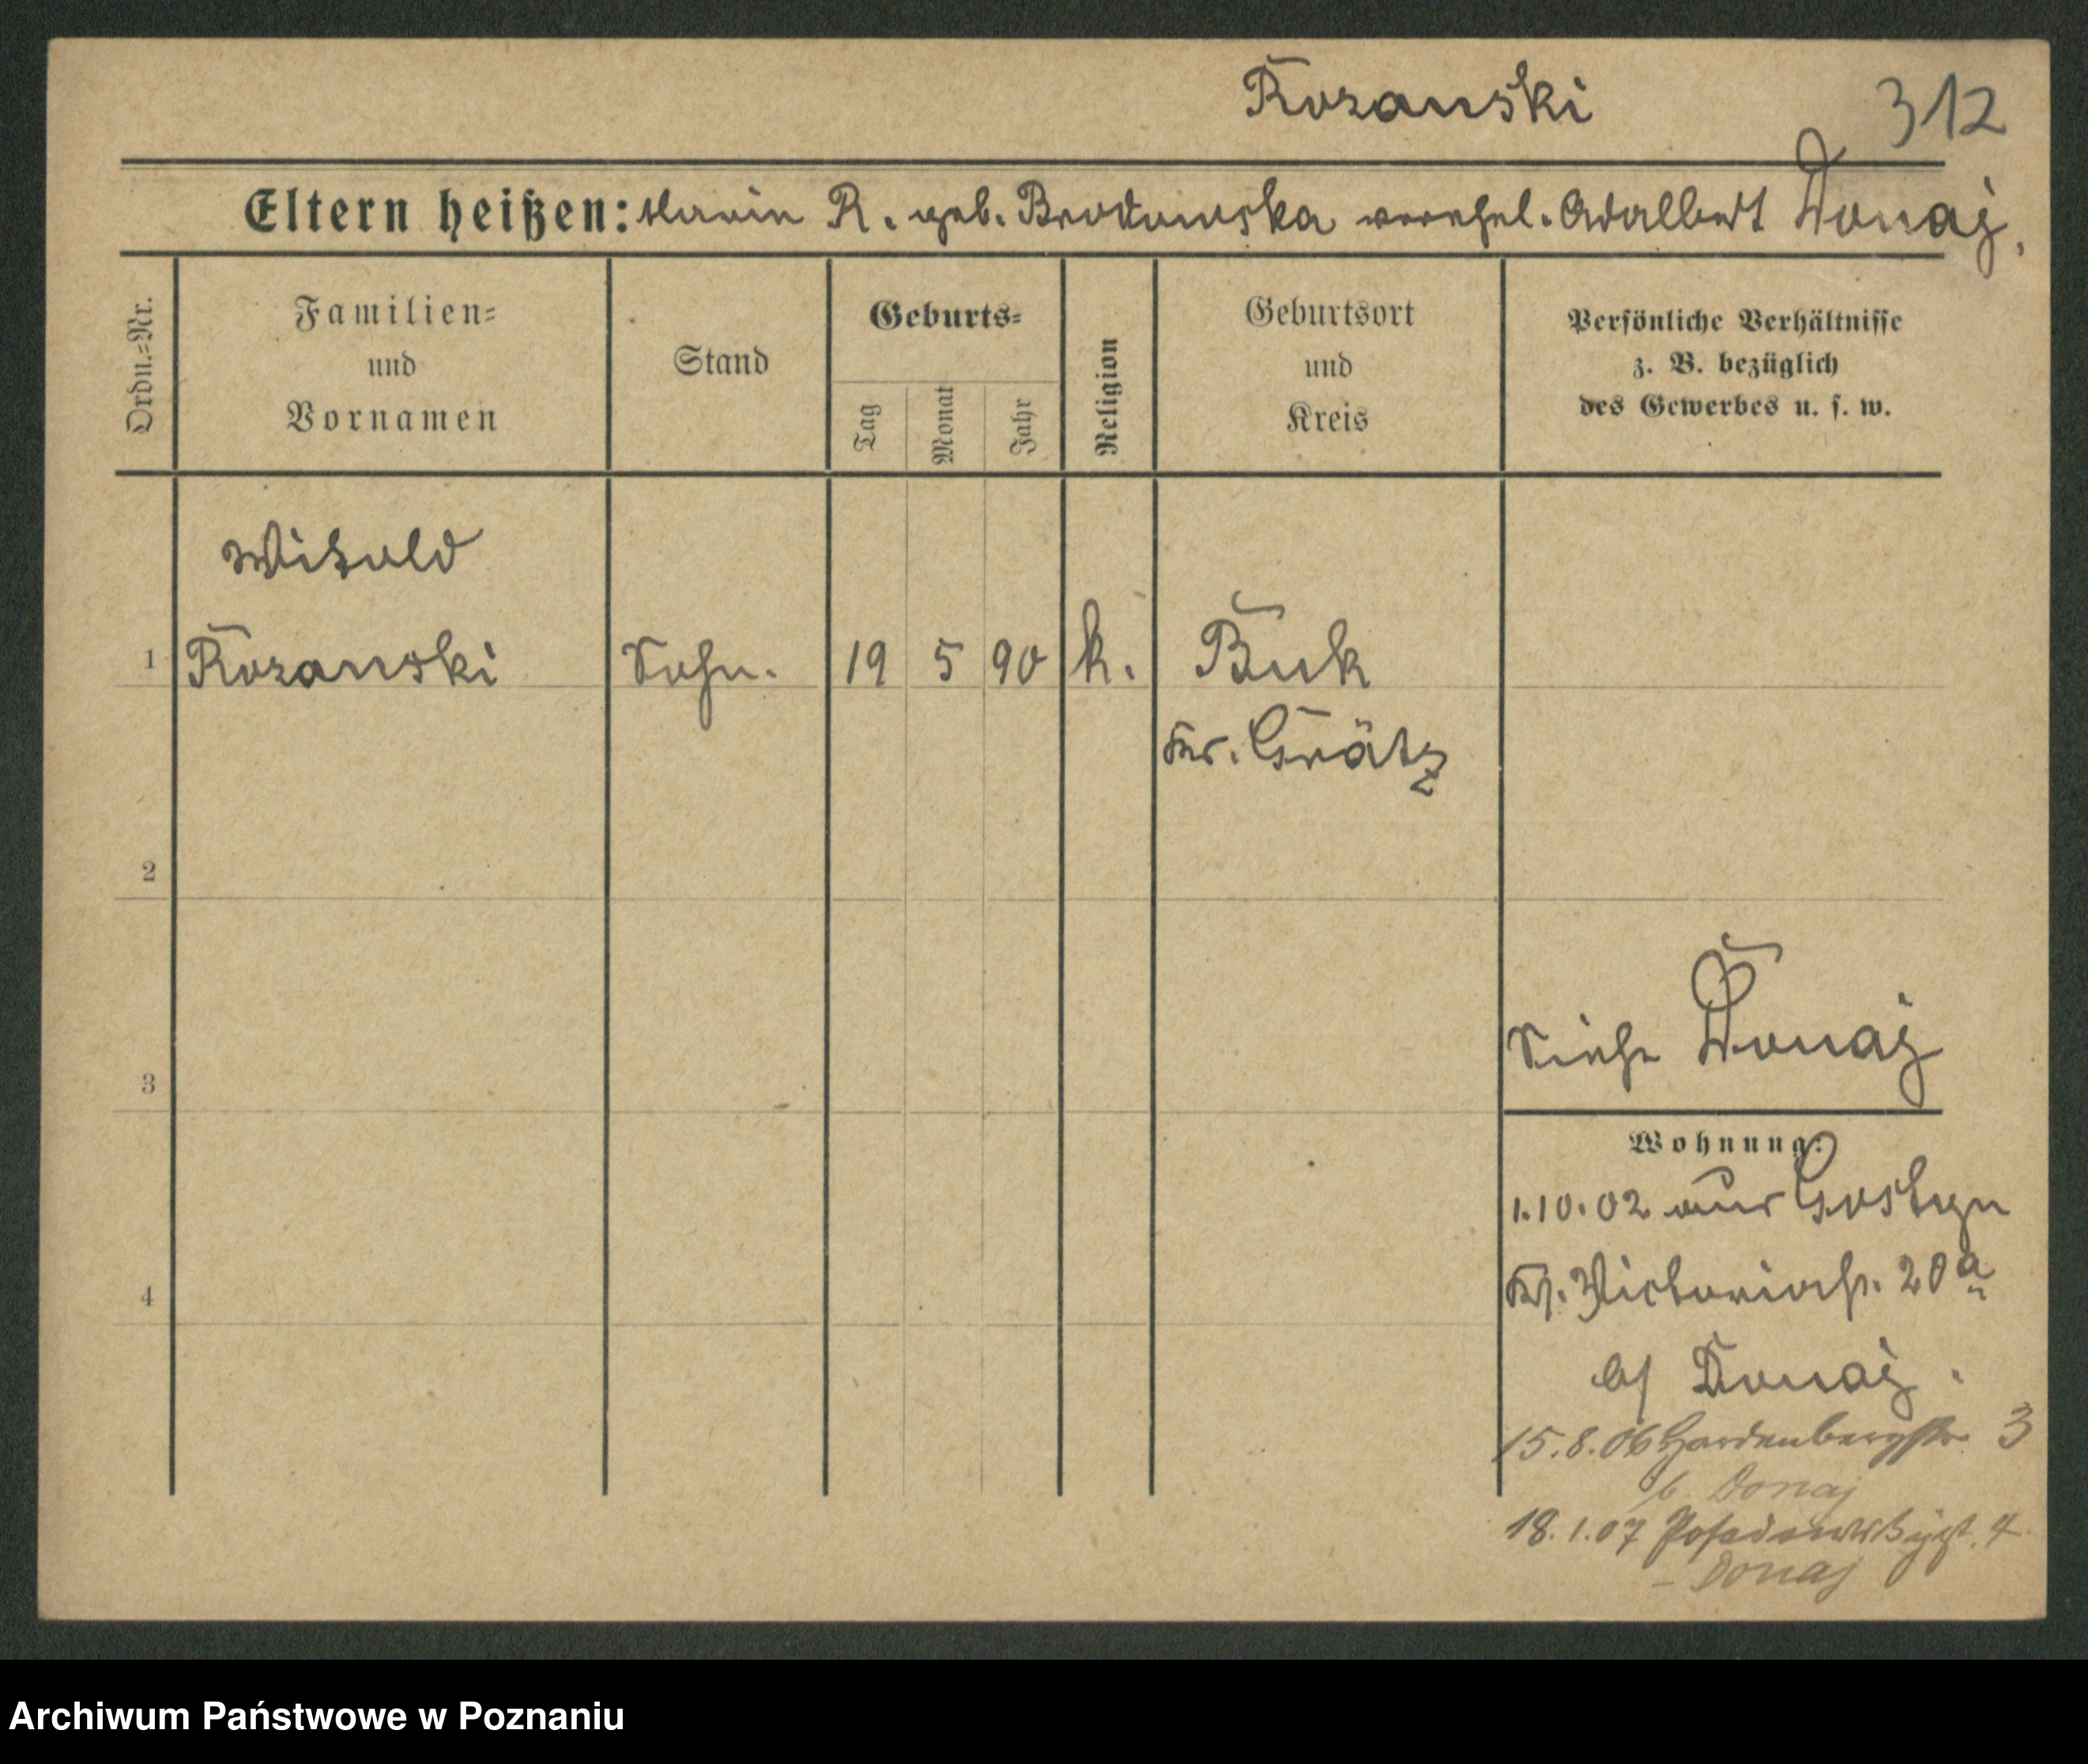 Rozanski 312
Eltern heißen: Marie R. geb. Brodowska verehel. Adalbert Donaj.
Ordn.=Nr.
Familien=
und
Vornamen
Stand
Geburts=
Tag
Monat
Jahr
Religion
Geburtsort
und
Kreis
Persönliche Verhältnisse
z. B. bezüglich
des Gewerbes u. s. w.
Witold
1 Rozanski Sohn. 19 5 90 k. Buk
Kr. Grätz
2
Siehe Donaj
3
Wohnung:
1.10.02 aus Gostyn
4 Victoriastr. 20a
Donaj.
15.8.06 Hardenbergstr. 3
b. Donaj
18.1.07 Posadowskystr. 4
- Donaj
Archiwum Państwowe w Poznaniu